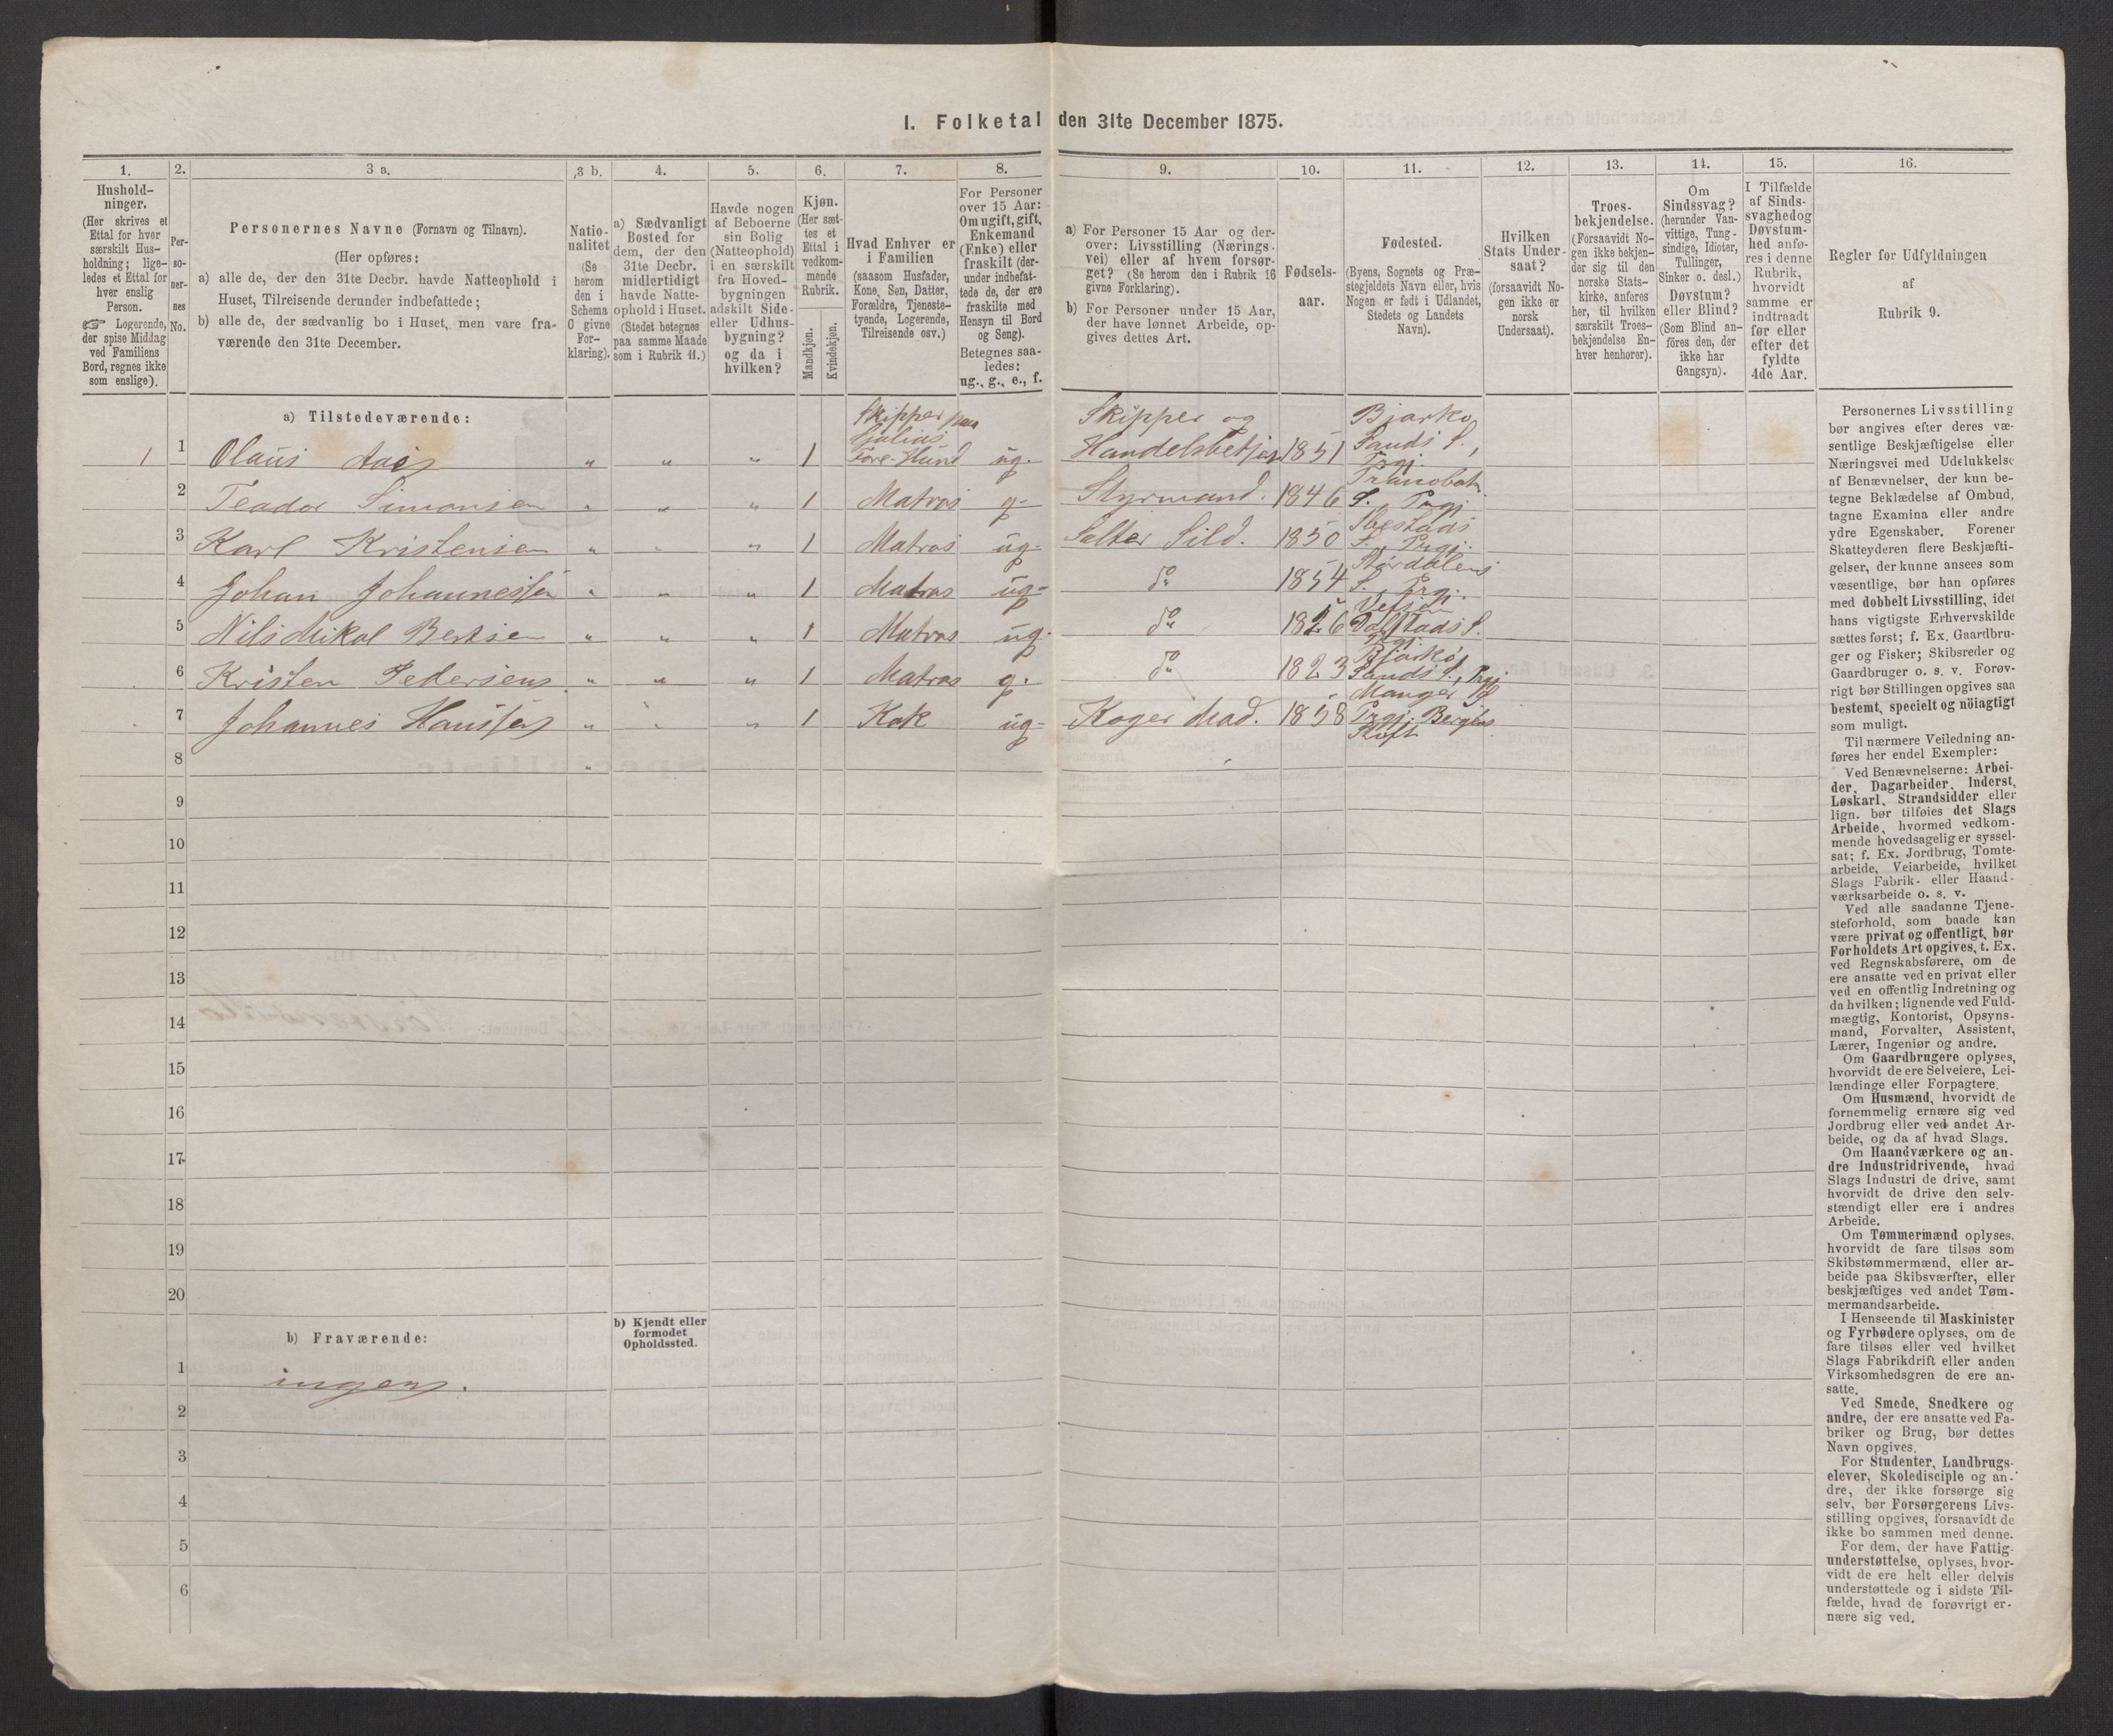 I. Folketal den 31te December 1875.
1.
Hushold-
ninger.
(Her skrives et
Ettal for hver
særskilt Hus-
holdning; lige-
ledes et Ettal for
hver enslig
Person.
☞ Logerende,
der spise Middag
ved Familiens
Bord, regnes ikke
som enslige).
2.
Per-
so-
ner-
nes
No.
3 a.
Personernes Navne (Fornavn og Tilnavn).
(Her opføres:
a) alle de, der den 31te Decbr. havde Natteophold i
Huset, Tilreisende derunder indbefattede;
b) alle de, der sædvanlig bo i Huset, men vare fra-
værende den 31te December.
3 b.
Natio-
nalitet
(Se
herom
den i
Schema
O givne
For-
klaring).
4.
a) Sædvanligt
Bosted for
dem, der den
31te Decbr.
midlertidigt
havde Natte-
ophold i Huset.
(Stedet betegnes
paa samme Maade
som i Rubrik 11.)
5.
Havde nogen
af Beboerne
sin Bolig
(Natteophold)
i en særskilt
fra Hoved-
bygningen
adskilt Side-
eller Udhus-
bygning?
og da i
hvilken?
6.
Kjøn.
(Her sæt-
tes et
Ettal i
vedkom-
mende
Rubrik.
Mandkjøn.
Kvindekjøn.
7.
Hvad Enhver er
i Familien
(saasom Husfader,
Kone, Søn, Datter,
Forældre, Tjeneste-
tyende, Logerende,
Tilreisende osv.)
8.
For Personer
over 15 Aar:
Om ugift, gift,
Enkemand
(Enke) eller
fraskilt (der-
under indbefat-
tede de, der ere
fraskilte med
Hensyn til Bord
og Seng).
Betegnes saa-
ledes:
ug., g., e., f.
9.
a) For Personer 15 Aar og der-
over: Livsstilling (Nærings-
vei) eller af hvem forsør-
get? (Se herom den i Rubrik 16
givne Forklaring).
b) For Personer under 15 Aar,
der have lønnet Arbeide, op-
gives dettes Art.
10.
Fødsels-
aar.
11.
Fødested.
(Byens, Sognets og Præ-
stegjeldets Navn eller, hvis
Nogen er født i Udlandet,
Stedets og Landets
Navn).
12.
Hvilken
Stats Under-
saat?
(forsaavidt No-
gen ikke er
norsk
Undersaat).
13.
Troes-
bekjendelse.
(Forsaavidt No-
gen ikke bekjen-
der sig til den
norske Stats-
kirke, anføres
her, til hvilken
særskilt Troes-
bekjendelse En-
hver henhører).
14.
Om
Sindssvag?
(herunder Van-
vittige, Tung-
sindige, Idioter,
Tullinger,
Sinker o. desl.)
Døvstum?
eller Blind?
(Som Blind an-
föres den, der
ikke har
Gangsyn).
15.
I Tilfælde
af Sinds-
svaghed og
Døvstum-
hed anfø-
res i denne
Rubrik,
hvorvidt
samme er
indtraadt
før eller
efter det
fyldte
4de Aar.
16.
Regler for Udfyldningen
af
Rubrik 9.
a) Tilstedeværende:
1 1 Olaus Aas " " " 1 Skipper paa Fore-Hund ug. Skipper og Handelsbetjen 1851 Bjarkø Sands S., Prgj.
2 Teador Simonsen " " " 1 Matros g- Styrmand. 1846 S. Prgj
3 Karl Kristensen " " " 1 Matros ug- Salter Sild. 1850 Ibestads S. Prgj.
4 Johan Johannessen " " " 1 Matros ug- do 1854 S. Prgj.
5 Nils Mikal " " " 1 Matros ug- do 1826 Vefsen Dolstads S. Prgj
6 Kristen Pedersens " " " 1 Matros g. do 1823 Bjarkø Sands S., Prgj
7 Johannes Hansen " " " 1 Kok ug- Koger Mad. 1858 Manger Prgj. Bergens Stift
8 "
9
10
11
12
13
14
15
16
17
18
19
20
b) Fraværende:
b) Kjendt eller
formodet
Opholdssted.
1 ingen.
2
3
4
5
6
Personernes Livsstilling
bør angives efter deres væ-
sentlige Beskjæftigelse eller
Næringsvei med Udelukkelse
af Benævnelser, der kun be-
tegne Beklædelse af Ombud,
tagne Examina eller andre
ydre Egenskaber. Forener
Skatteyderen flere Beskjæfti-
gelser, der kunne ansees som
væsentlige, bør han opføres
med dobbelt Livsstilling, idet
hans vigtigste Erhvervskilde
sættes først; f. Ex. Gaardbru-
ger og Fisker; Skibsreder og
Gaardbruger o. s. v. Forøv-
rigt bør Stillingen opgives saa
bestemt, specielt og nöiagtigt
som muligt.
Til nærmere Veiledning an-
føres her endel Exempler:
Ved Benævnelserne: Arbei-
der, Dagarbeider, Inderst,
Løskarl, Strandsidder eller
lign. bør tilføies det Slags
Arbeide, hvormed vedkom-
mende hovedsagelig er syssel-
sat; f. Ex. Jordbrug, Tomte-
arbeide, Veiarbeide, hvilket
Slags Fabrik- eller Haand-
værksarbeide o. s. v.
Ved alle saadanne Tjene-
steforhold, som baade kan
være privat og offentligt, bør
Forholdets Art opgives, t. Ex.
ved Regnskabsførere, om de
ere ansatte ved en privat eller
ved en offentlig Indretning og
da hvilken; lignende ved Fuld-
mægtig, Kontorist, Opsyns-
mand, Forvalter, Assistent,
Lærer, Ingeniør og andre.
Om Gaardbrugere oplyses,
hvorvidt de ere Selveiere, Lei-
lændinge eller Forpagtere.
Om Husmænd, hvorvidt de
fornemmelig ernære sig ved
Jordbrug eller ved andet Ar-
beide, og da af hvad Slags.
Om Haandværkere og an-
dre Industridrivende, hvad
Slags Industri de drive, samt
hvorvidt de drive den selv-
stændigt eller ere i andres
Arbeide.
Om Tømmermænd oplyses,
hvorvidt de fare tilsøs som
Skibstømmermænd, eller ar-
beide paa Skibsværfter, eller
beskjæftiges ved andet Tøm-
mermandsarbeide.
I Henseende til Maskinister
og Fyrbødere oplyses, om de
fare tilsøs eller ved hvilket
Slags Fabrikdrift eller anden
Virksomhedsgren de ere an-
satte.
Ved Smede, Snedkere og
andre, der ere ansatte ved Fa-
briker og Brug, bør dettes
Navn opgives.
For Studenter, Landbrugs-
elever, Skoledisciple og an-
dre, der ikke forsørge sig
selv, bør Forsørgerens Livs-
stilling opgives, forsaavidt de
ikke bo sammen med denne.
For dem, der have Fattig-
understøttelse, oplyses, hvor-
vidt de ere helt eller delvis
understøttede og i sidste Til-
fælde, hvad de forøvrigt er-
nære sig ved.